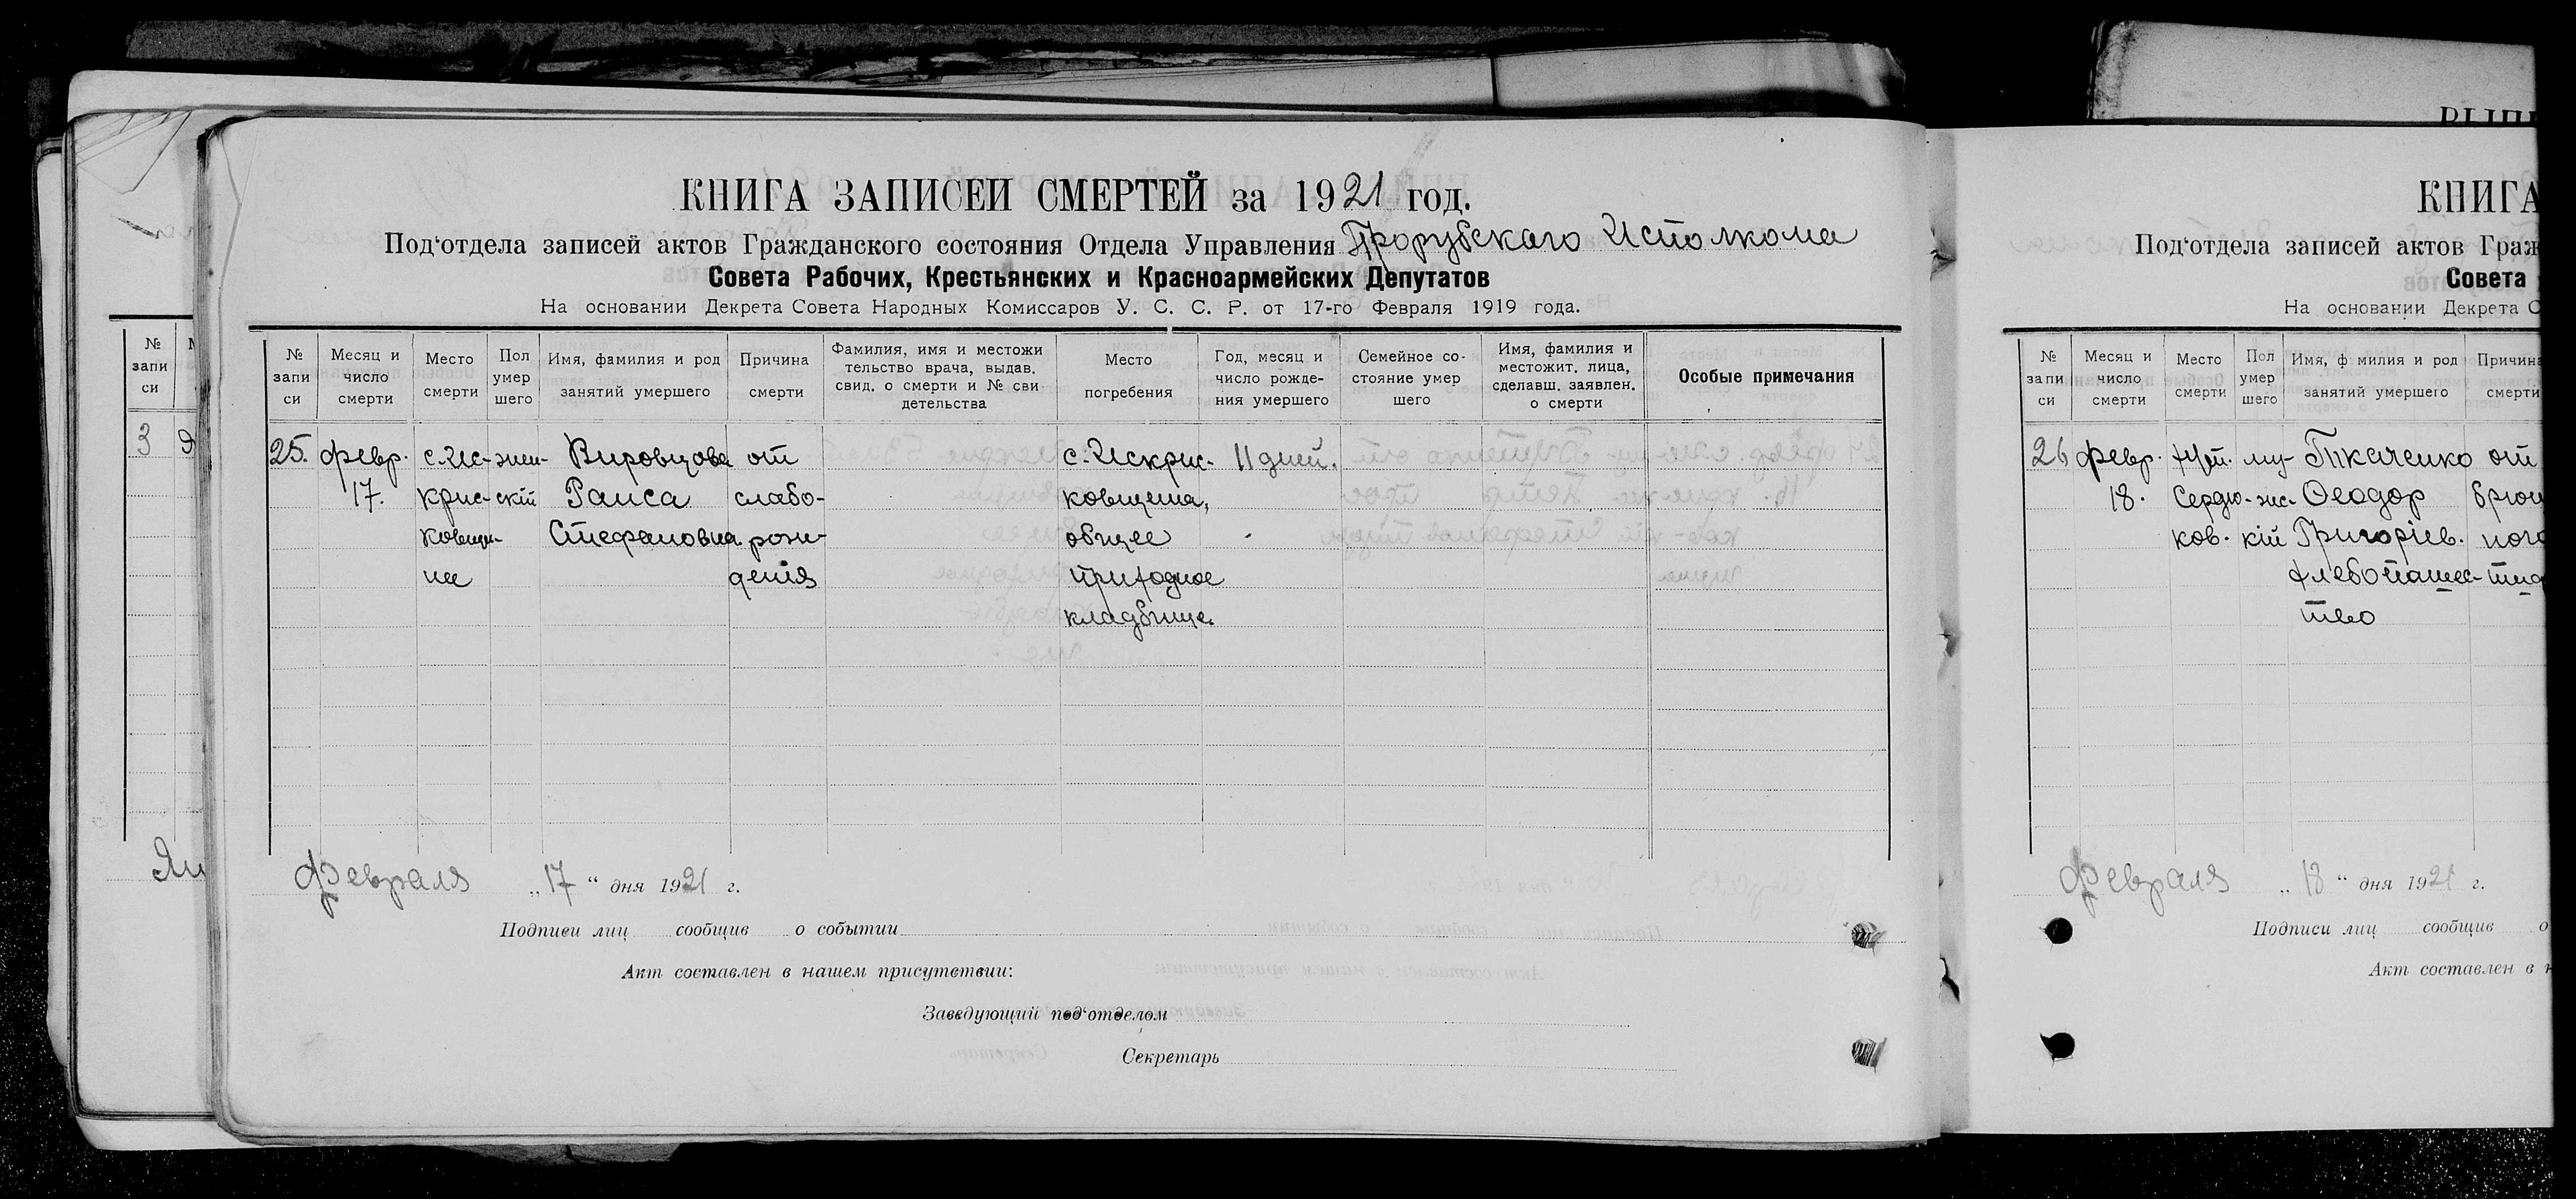 КНИГА ЗАПИСЕЙ СМЕРТЕЙ за 1921 год.
Под'отдела записей актов Гражданского состояния Отдела Управления Прорубскаго Исполкома
Совета Рабочих, Крестьянских и Красноармейских Депутатов
На основании Декрета Совета Народных Комиссаров У. С. С. Р. от 17-го Февраля 1919 года.
№ запи си
Месяц и число смерти
Место смерти
Пол умер шего
Имя, фамилия и род занятий умершего
Причина смерти
Фамилия, имя и местожи тельство врача, выдав. свид. о смерти и № сви детельства
Место погребения
Год, месяц и число рожде- ния умершего
Семейное со- стояние умер шего
Имя, фамилия и местожит. лица, сделавш. заявлен. о смерти
Особые примечания
25. февр. с. Ис- жен- Вировцова от с. Искрис- 11 дней.
17. крис- скій Раиса слабо- ковщина,
ковщи- Стефановна рож- общее
на денія приходное
кладбище.
Февраля „17“ дня 1921 г.
Подписи лиц сообщив о событии
Акт составлен в нашем присутствии:
Заведующий под'отделом
Секретарь
№ запи си
3
ВЫПИ
КНИГА
Под'отдела записей актов Граж
Совета
На основании Декрета С
№ запи си
Месяц и число смерти
Место смерти
Пол умер шего
Имя, ф милия и род занятий умершего
Причина смерти
26 февр. хут. му- Ткаченко от
18. Сердю- жс- Феодор брюш
ков. кій Григоріев. ного
хлебопашес- тиф
тво
Февраля „18“ дня 1921 г.
Подписи лиц сообщив о
Акт составлен в н